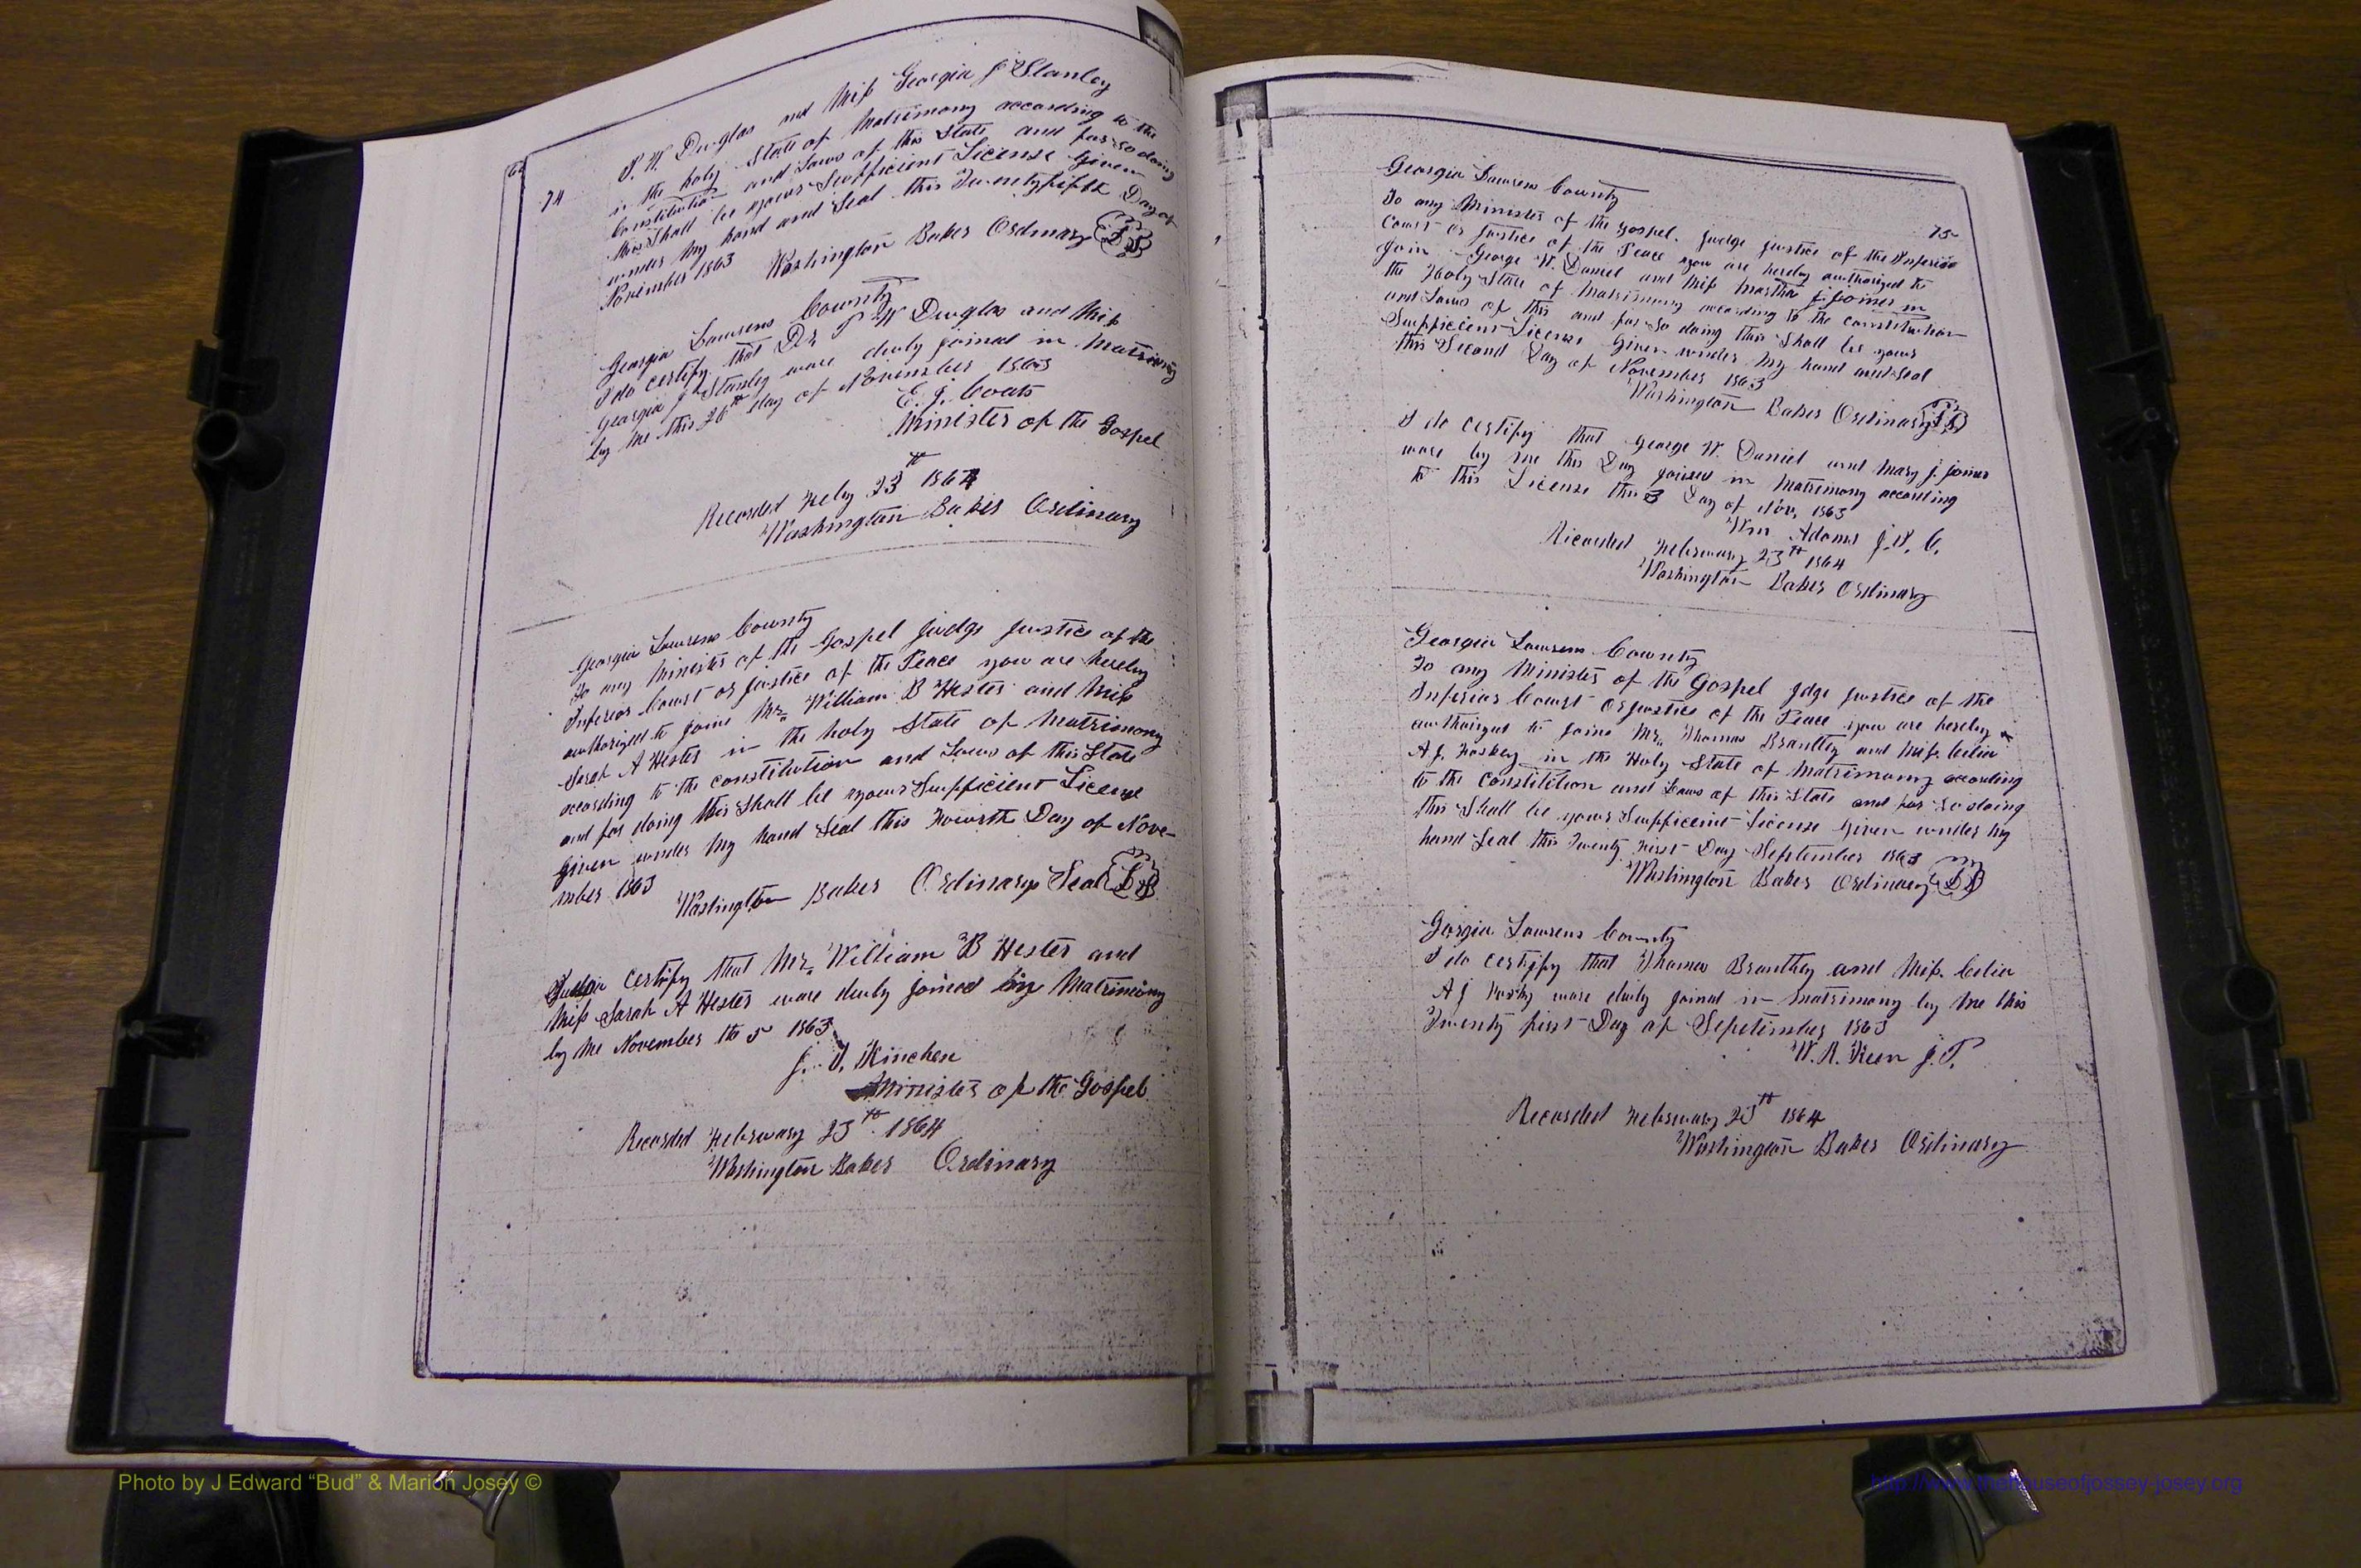 74
P. W. Duglas and Miss Georgia J Stanley
in the holy State of Matrimony according to the
Constitution and Laws of this State and for so doing
this Shall be yours Sufficient License Given
under My hand and Seal this Twentyfifth Day of
November 1863 Washington Baker Ordinary L S
Georgia Laurens County
I do certify that Dr P W Duglas and Miss
Georgia J Stanley ware duly joined in Matrimony
by Me this 26th day of November 1863
E. J. Coats
Minister of the Gospel
Recorded Feby 23th 1864
Washington Baker Ordinary
Georgia Laurens County
To any Minister of the Gospel Judge Justice of the
Inferior Court or Justice of the Peace you are hereby
authorized to joine Mr. William B Hester and Miss
Sarah A Hester in the holy State of Matrimony
according to the constitution and Laws of this State
and for doing this Shall be yours Sufficient License
Given under My hand Seal this Fourth Day of Nove-
mber 1863
Washington Baker Ordinary Seal L S
certify that Mr. William B Hester and
Miss Sarah A Hester ware duly joined in Matrimony
by Me November th 5 1863
Kinchen
Minister of the Gospel
Recorded February 23th 1864
Washington Baker Ordinary
75
Georgia Laurens County
To any Minister of the Gospel. Judge Justice of the Inferior
Court or Justice of the Peace you are hereby authorized to
Join George W. Daniel and Miss Martha J Joiner in
the Holy State of Matrimony according to the constitution
and Laws of this and for so doing this Shall be yours
Sufficient License Given under My hand and Seal
this Second Day of November 1863
Washington Baker Ordinary L S
I do certify that George W. Daniel and Mary J. Joiner
ware by me this Day joined in Matrimony according
to this License this 3 Day of Nov. 1863
Wm Adams J. I. C.
Recorded February 23th 1864
Washington Baker Ordinary
Georgia Laurens County
To any Minister of the Gospel Jdge Justice of the
Inferior Court or Justice of the Peace you are hereby
authorized to joine Mr. Thomas Brantley and Miss. Celia
A J. in the Holy State of Matrimony according
to the Constitution and Laws of this State and for so doing
this Shall be yours Sufficient License Given under My
hand Seal this Twenty First Day September 1863
Washington Baker Ordinary L S
Gorgia Laurens County
I do certify that Thomas Branthey and Miss. Celia
A J ware duly joined in Matrimony by Me this
Twenty first Day of September 1863
W. R. Keen J. P.
Recorded February 23th 1864
Washington Baker Ordinary
Photo by J Edward “Bud” & Marion Josey ©
http://www.thehouseofjossey-josey.org